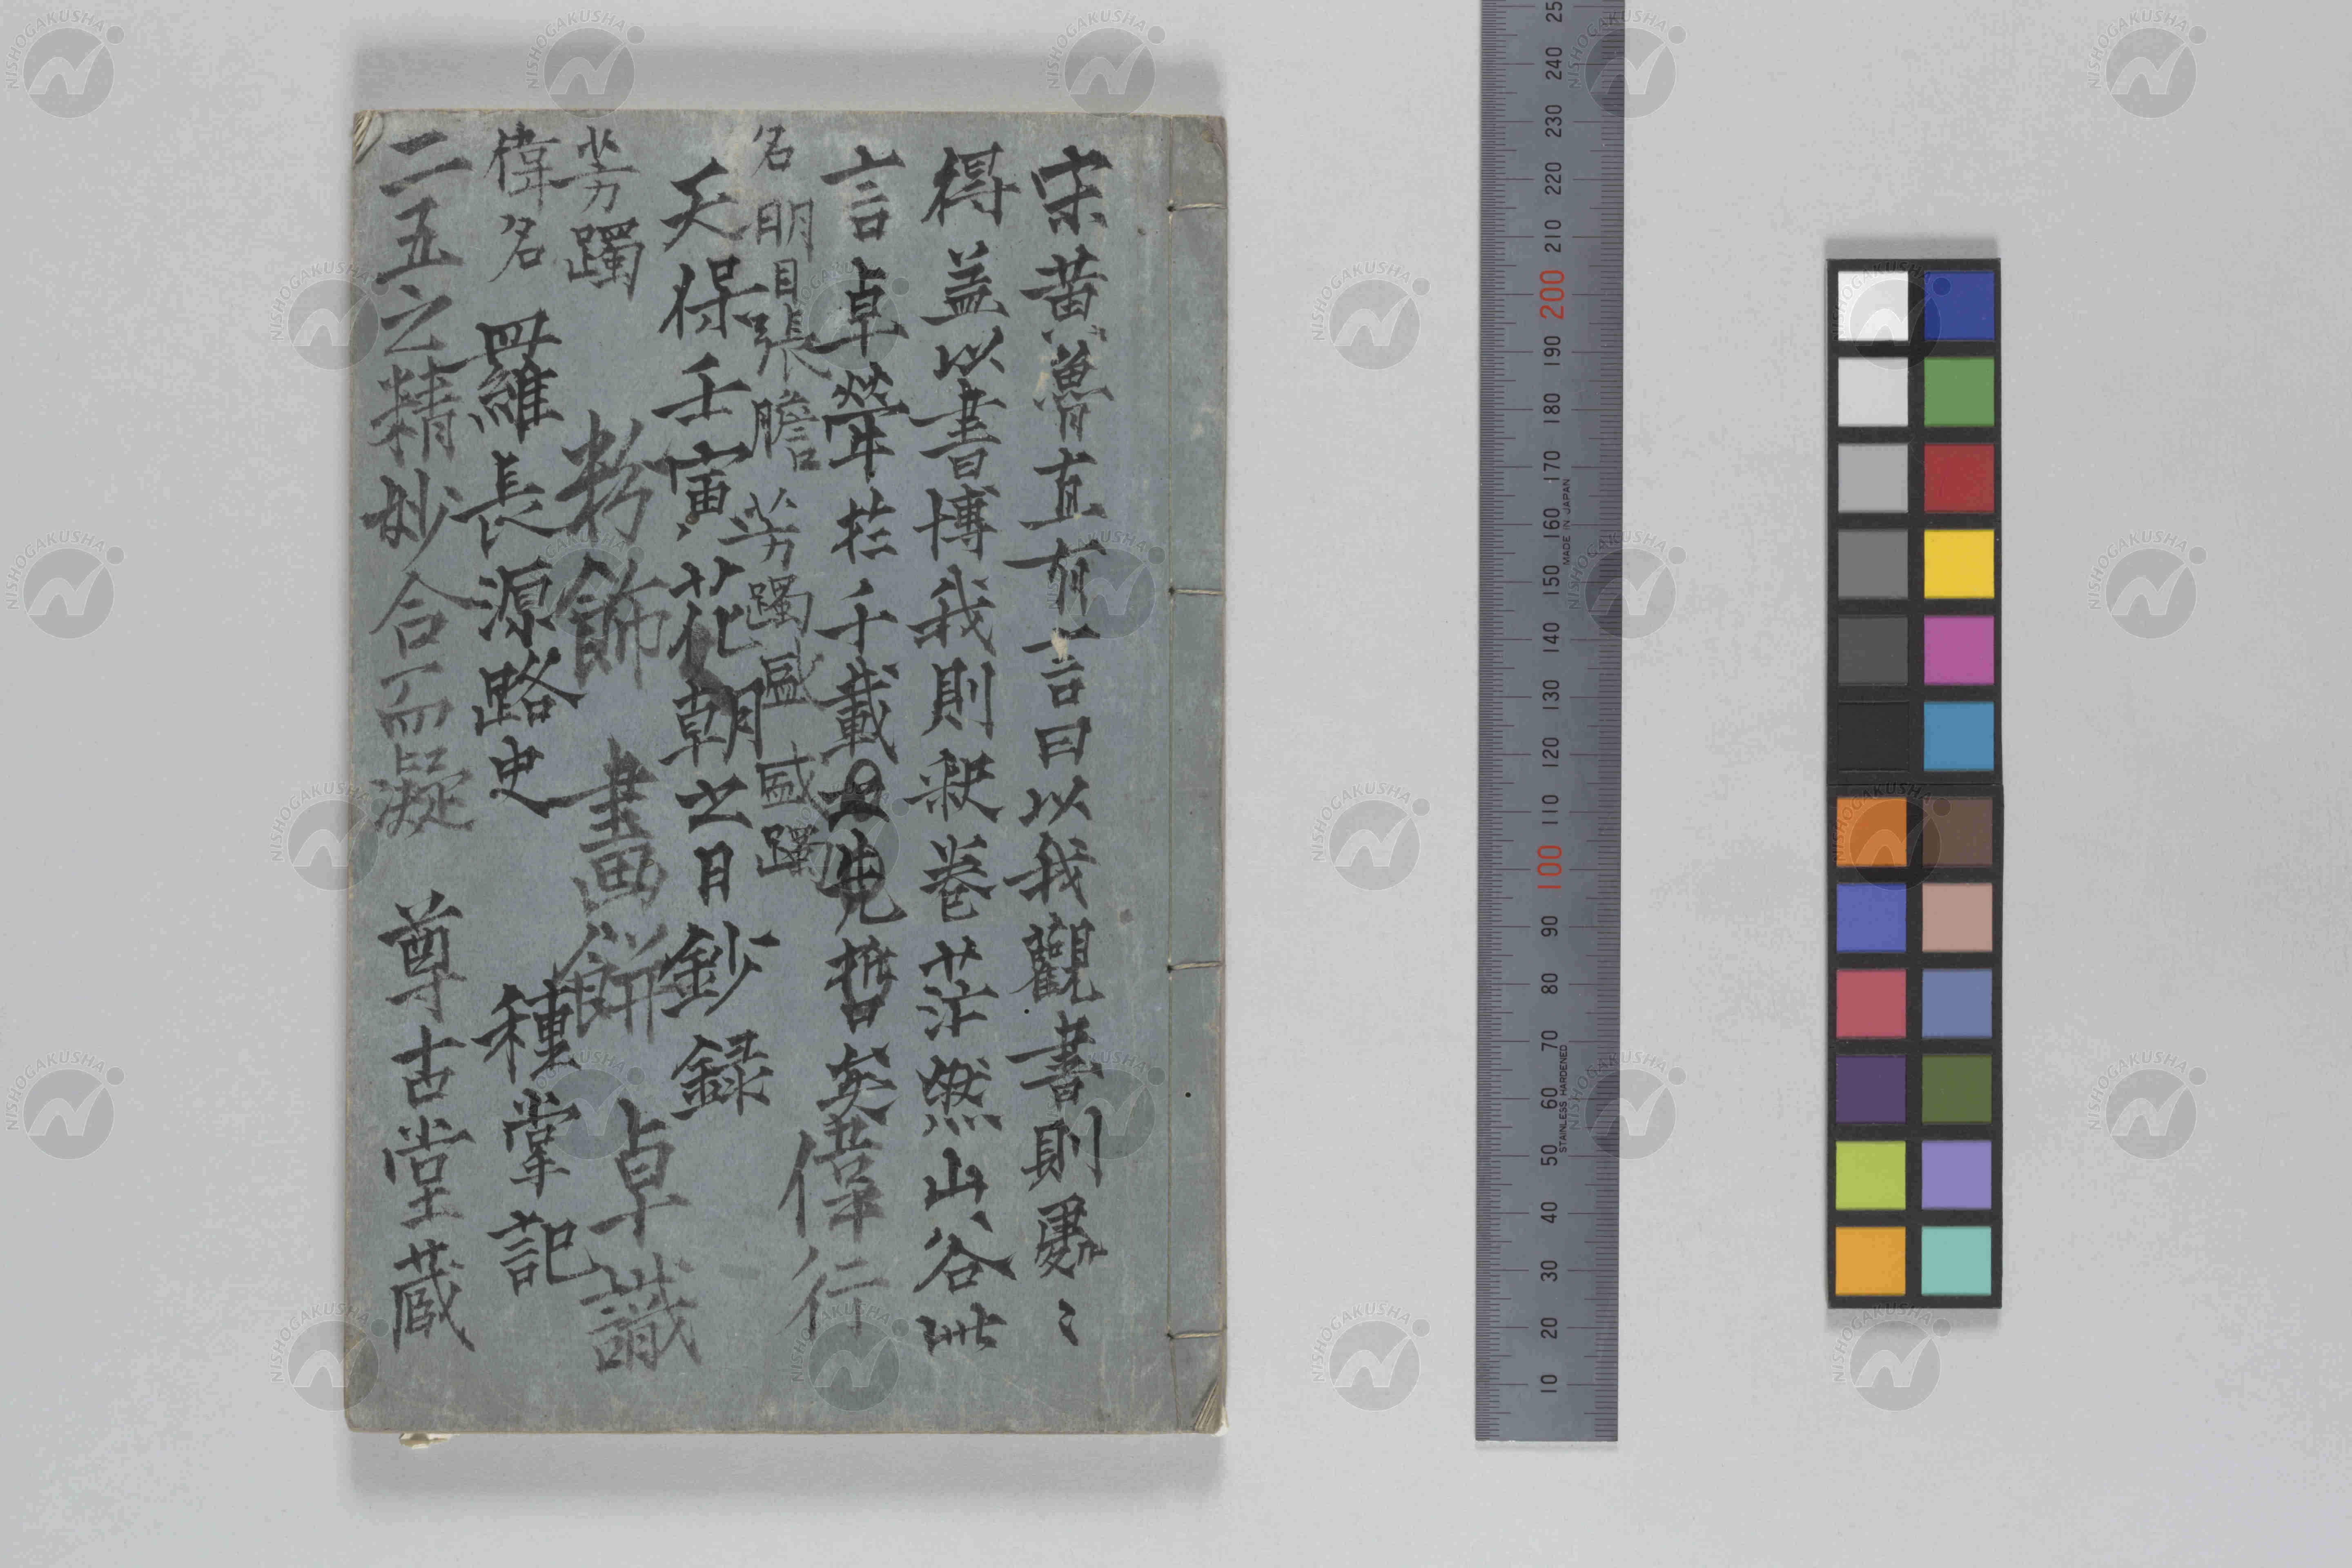 宋黄魯直有言曰以我觀書則處〻
得益以書博我則釈巻茫然山谷此
言卓犖於千載之先哲矣偉行
名明目張膽芳躅盛盛躅
天保壬寅花朝之日鈔録
芳躅 粉飾畫餅 卓識
偉名 羅長源路史 種掌記
二五之精妙合而凝 尊古堂蔵
250
240
230
220
210
200
190
180
170
160
150
140
130
120
110
100
90
80
70
60
50
40
30
20
10
MADE IN JAPAN
STAINLESS HARDENED
NISHOGAKUSHA